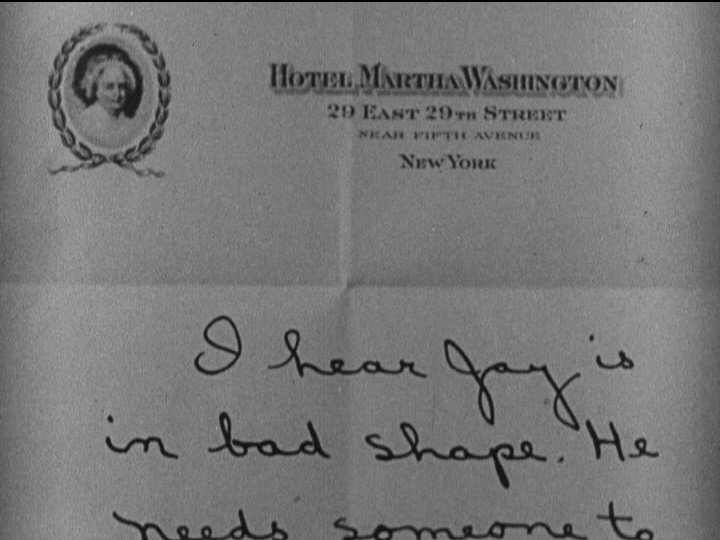 HOTEL MARTHA WASHINGTON
29 EAST 29TH STREET
NEAR FIFTH AVENUE
NEW YORK
I hear Jay is
in bad shape. He
needs someone to